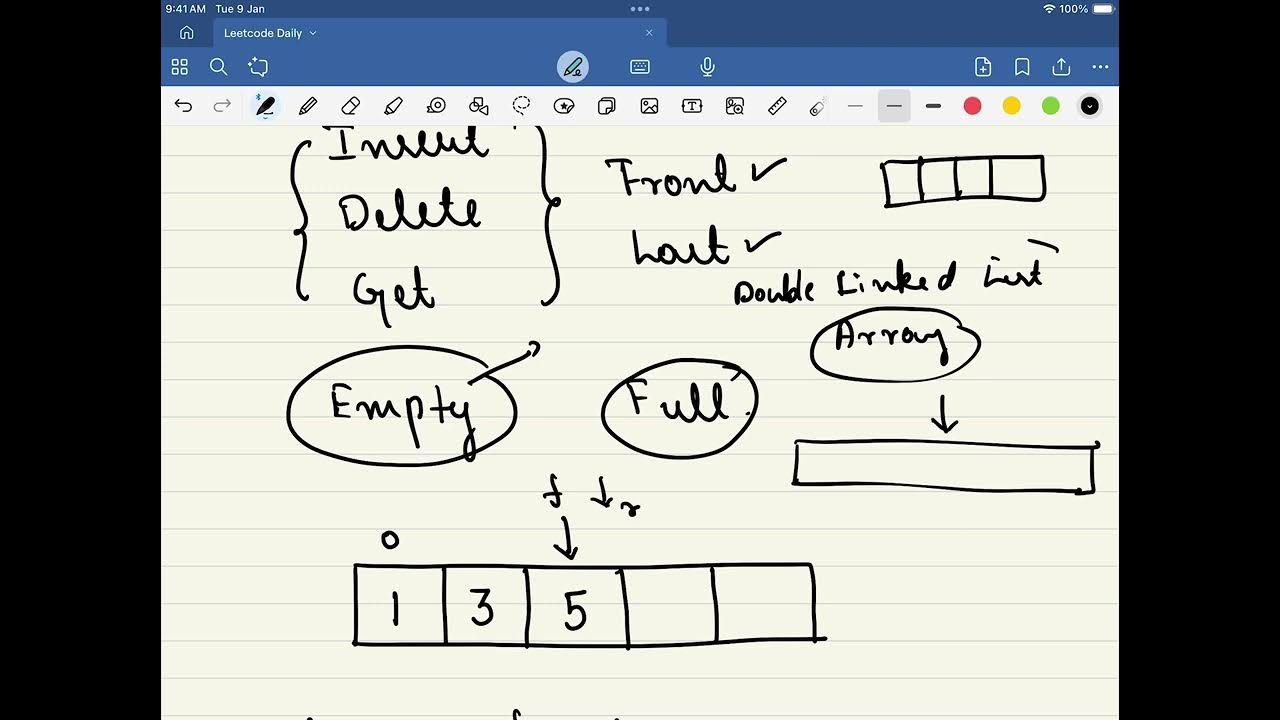 9:41 AM Tue 9 Jan
100%
Leetcode Daily
Insert
Delete
Get
Front ✓
Last ✓
Double Linked List
Array
Empty
Full
f ↓ r
0
1 3 5